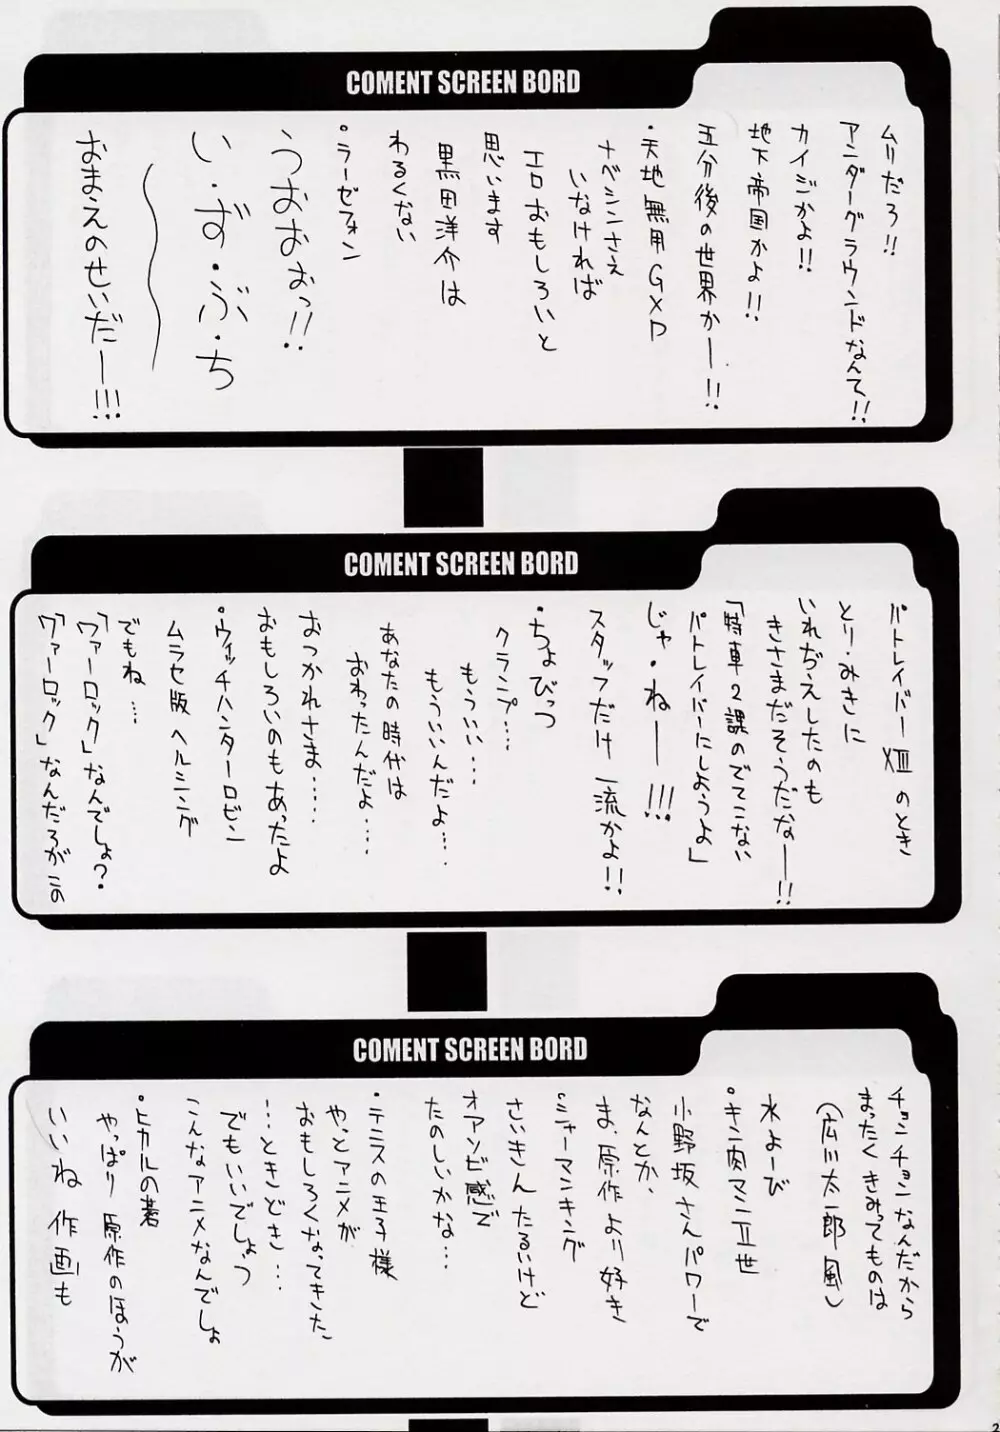 COMENT SCREEN BORD
ムリだろ!!
アンダーグラウンドなんて!!
カイジかよ!!
地下帝国かよ!!
五分後の世界かー!!
・天地無用GXP
ナベシンさえ
いなければ
エロおもしろいと
思います
黒田洋介は
わるくない
・ラーゼフォン
うおおぉっ!!
い・ず・ぶ・ち
おまえのせいだー!!!
COMENT SCREEN BORD
パトレイバー XIII のとき
とり・みきに
いれぢえしたのも
きさまだそうだなー!!
「特車2課のでてこない
パトレイバーにしようよ」
じゃ・ねー!!!
スタッフだけ一流かよ!!
・ちょびっつ
クランプ…
もういい…
もういいんだよ…
あなたの時代は
おわったんだよ…
おつかれさま…
おもしろいのもあったよ
・ウィッチハンターロビン
ムラセ版 ヘルシング
でもね…
「ワァーロック」なんでしょ?
「ワァーロック」なんだろがこの
COMENT SCREEN BORD
チョンチョンなんだから
まったくきみってものは
(広川太一郎風)
水よーび
・キン肉マンII世
小野坂さんパワーで
なんとか、
ま、原作より好き
・シャーマンキング
さいきんたるいけど
オアソビ感で
たのしいかな…
・テニスの王子様
やっとアニメが
おもしろくなってきた、
…ときどき…
でもいいでしょっ
こんなアニメなんでしょ
・ヒカルの碁
やっぱり原作のほうが
いいね 作画も
2